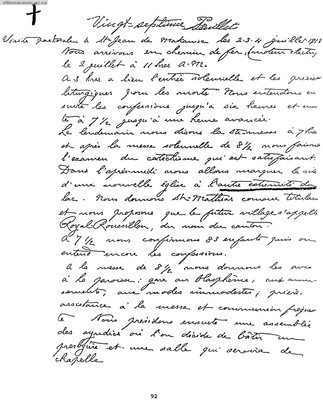 Vingt-septième Feuillet
Visite pastorale à St Jean de Makamik les 2-3-4 juillet 1918
Nous arrivons en chemin de fer, (moteur électrique)
le 2 juillet à 11 hres A.M.
A 3 hres a lieu l'entrée solennelle et les prières
liturgiques pour les morts. Nous entendons en-
suite les confessions jusqu'à six heures et en-
suite à 7 ½ jusqu'à une heure avancée.
Le lendemain nous disons la Ste messe à 7 hs
et après la messe solennelle de 8 ½ nous faisons
l'examen du catéchisme qui est satisfaisant.
Dans l'après-midi nous allons marquer le site
d'une nouvelle église à l'autre extrémité du
lac. Nous donnons St-Mathias comme titulaire
et nous proposons que le futur village s'appelle
Royal Roussillon, du nom du canton.
A 7 ½ nous confirmons 83 enfants puis on
entend encore les confessions.
A la messe de 8 ½ nous donnons les avis
à la paroisse: gare au blasphème, aux amu-
sements, aux modes immodestes; prière,
assistance à la messe et communion fréquen-
te. Nous présidons ensuite une assemblée
des syndics où l'on décide de bâtir un
presbytère et une salle qui servira de
chapelle
92